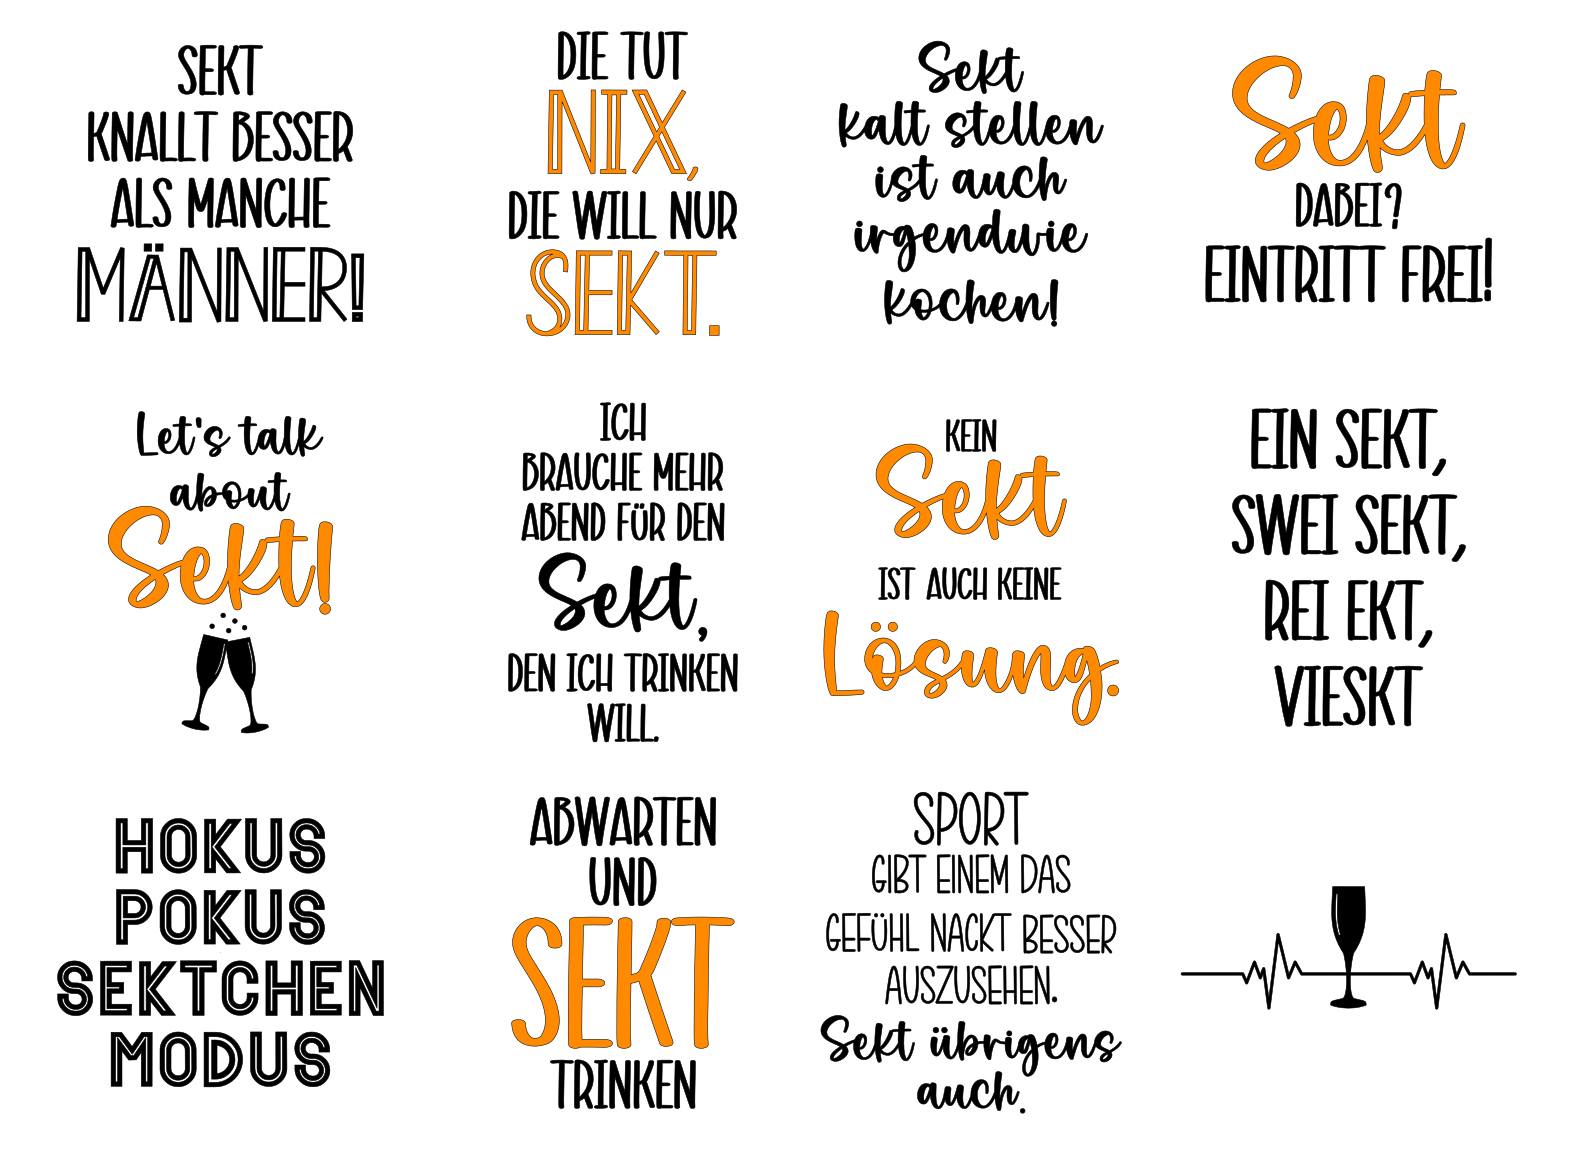 SEKT
KNALLT BESSER
ALS MANCHE
MÄNNER!
DIE TUT
NIX,
DIE WILL NUR
SEKT.
Sekt
kalt stellen
ist auch
irgendwie
kochen!
Sekt
DABEI?
EINTRITT FREI!
Let's talk
about
Sekt!
ICH
BRAUCHE MEHR
ABEND FÜR DEN
Sekt,
DEN ICH TRINKEN
WILL.
KEIN
Sekt
IST AUCH KEINE
Lösung.
EIN SEKT,
SWEI SEKT,
REI EKT,
VIESKT
HOKUS
POKUS
SEKTCHEN
MODUS
ABWARTEN
UND
SEKT
TRINKEN
SPORT
GIBT EINEM DAS
GEFÜHL NACKT BESSER
AUSZUSEHEN.
Sekt übrigens
auch.